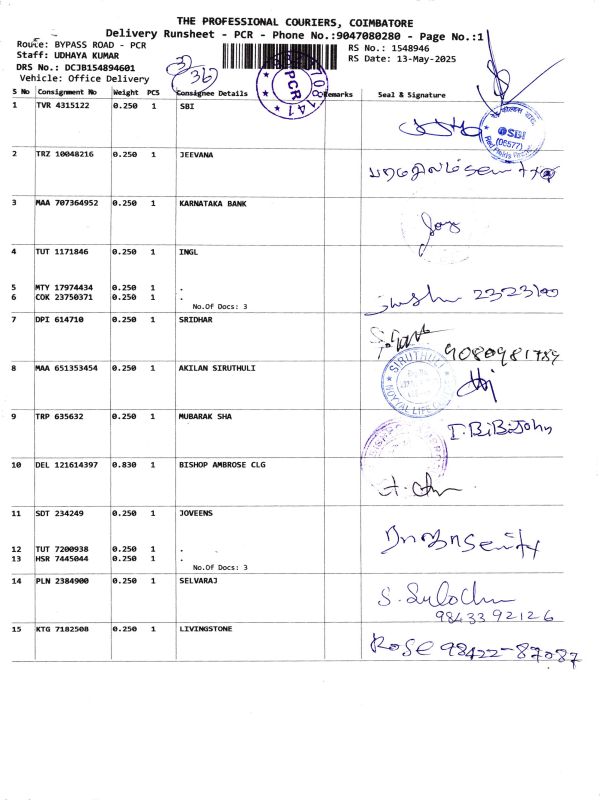 THE PROFESSIONAL COURIERS, COIMBATORE
Delivery Runsheet - PCR - Phone No.:9047080280 - Page No.:1
Route: BYPASS ROAD - PCR
RS No.: 1548946
Staff: UDHAYA KUMAR
RS Date: 13-May-2025
DRS No.: DCJB154894601
Vehicle: Office Delivery
36
PCR
S No Consignment No Weight PCS Consignee Details Remarks Seal & Signature
1 TVR 4315122 0.250 1 SBI
SBI
(06577)
2 TRZ 10048216 0.250 1 JEEVANA
3 MAA 707364952 0.250 1 KARNATAKA BANK
4 TUT 1171846 0.250 1 INGL
5 MTY 17974434 0.250 1 .
6 COK 23750371 0.250 1 .
No.Of Docs: 3
7 DPI 614710 0.250 1 SRIDHAR
9080981789
8 MAA 651353454 0.250 1 AKILAN SIRUTHULI
SIRUTHULI
NOYYAL LIFE
9 TRP 635632 0.250 1 MUBARAK SHA
I.BiBiJohn
10 DEL 121614397 0.830 1 BISHOP AMBROSE CLG
11 SDT 234249 0.250 1 JOVEENS
12 TUT 7200938 0.250 1 .
13 HSR 7445044 0.250 1 .
No.Of Docs: 3
14 PLN 2384900 0.250 1 SELVARAJ
S. Sulochu
98433 92126
15 KTG 7182508 0.250 1 LIVINGSTONE
Rose 98422-87087